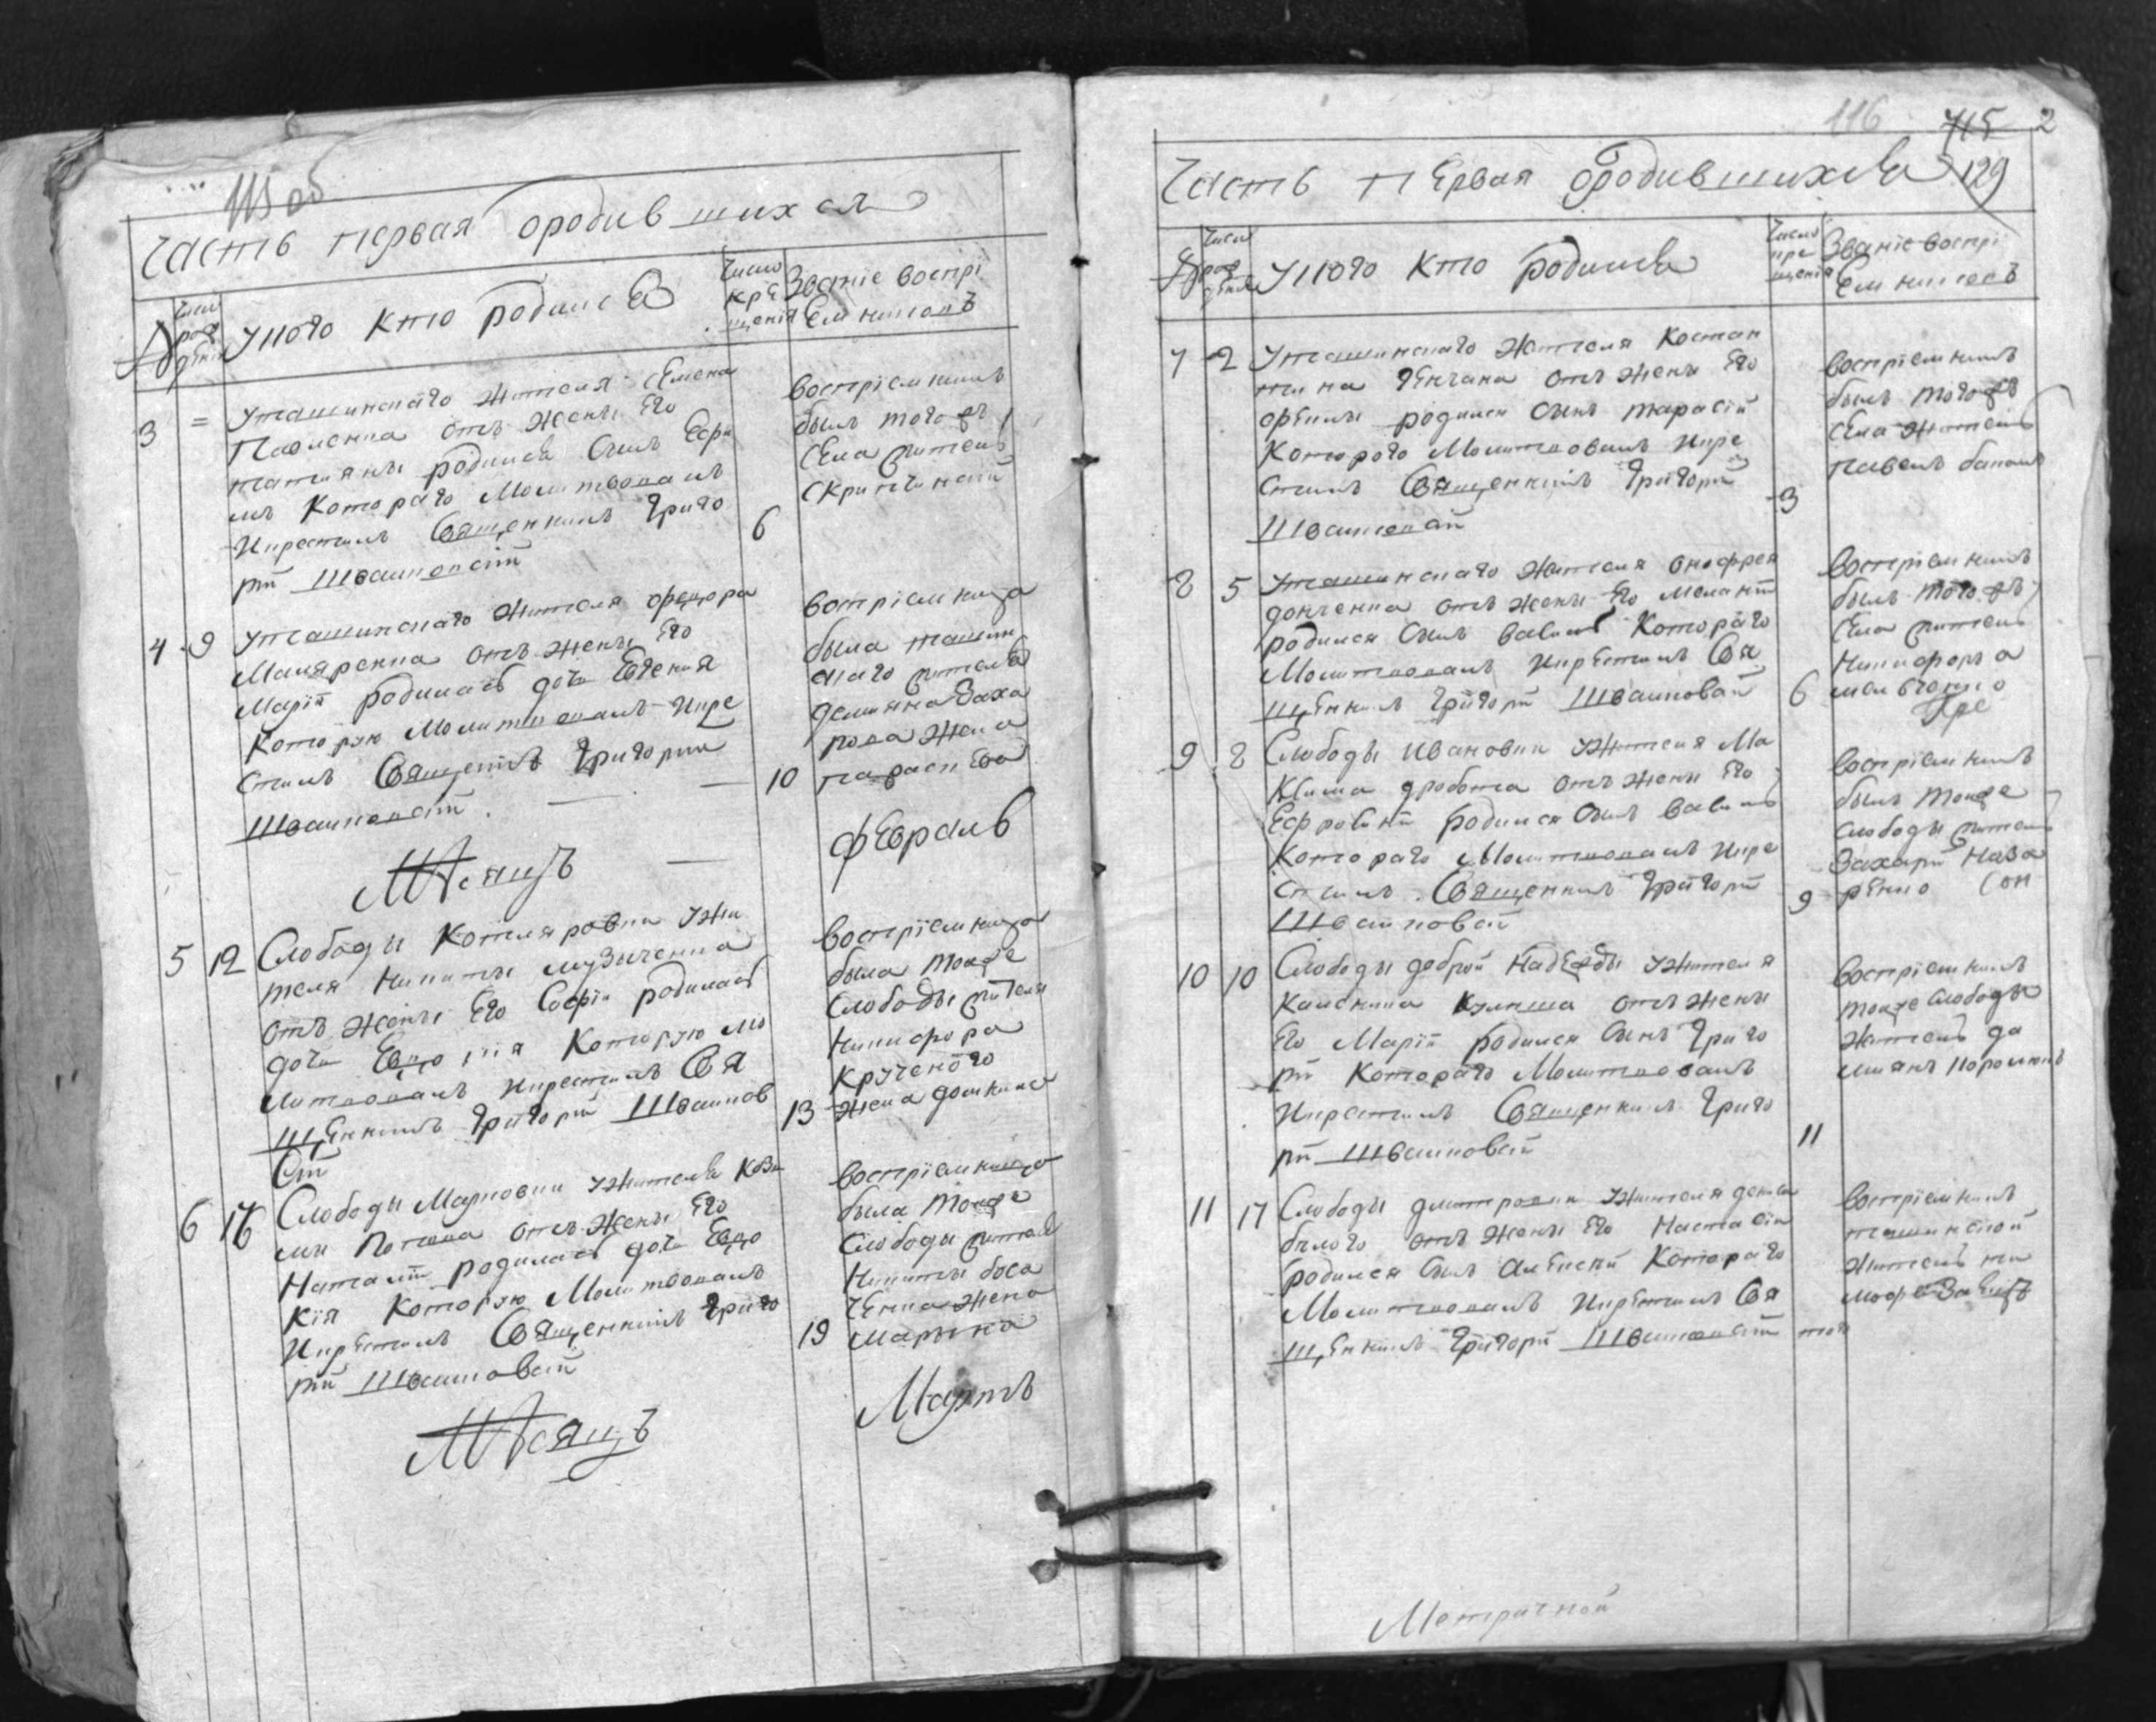 115 об
Часть первая ородившихся
№
Число рождения
У кого кто родился
Число крещения
Званіе воспріемниковъ
3
=
У ташинскаго жителя Семена
Павленка отъ жены Его
татианы родился Сынъ Ефре
мъ Котораго Молитвовалъ
Икрестилъ Священникъ Григо
рій Шваиковскій
6
воспріемникъ
былъ того жъ
Села житель
Скрипчинскій
4
9
У ташинскаго жителя ѳедора
Маляренка отъ жены Его
Маріи родилась дочь Евгенія
Которую Молитвовалъ Икре
стилъ Священникъ Григорий
10
воспріемница
была ташин
скаго жителя
демияна Заха
рова жена
параскева
Мѣсяцъ
февраль
5
12
Слободы Котляровки ужи
теля Никиты музыченка
отъ жены Его Софіи родилась
дочь Евдокія Которую Мо
литвовалъ Икрестилъ Свя
щенникъ Григорій Шваиков
Скій
13
воспріемница
была тоиже
Слободы жителя
Никифора
Крученого
жена домникия
6
16
Слободы Марковки ужителя Козь
мы Попова отъ жены Его
Наталіи родилась дочь Евдо
кія Которую Молитвовалъ
Икрестилъ Священникъ Григо
рій Шваиковскій
19
воспріемница
была тоиже
Слободы жителя
Никиты боса
ченка жена
марына
Мѣсяцъ
Мартъ
116
115
2
129
Часть первая ородившихся
№
Число рождения
У кого кто родился
Число крещения
Званіе воспріемниковъ
7
2
У ташинскаго жителя Костан
тина Генчана отъ жены Его
родился Сынъ тарасій
Которого Молитвовалъ Икре
стилъ Священникъ Григорій
Шваиковскій
3
воспріемникъ
былъ того жъ
Села житель
павелъ
8
5
У ташинскаго жителя онофрея
донченка отъ жены Его Меланіи
родился Сынъ василь Котораго
Молитвовалъ Икрестилъ Свя
щенникъ Григорій Шваиковскій
6
воспріемникъ
былъ того жъ
Села житель
Никифоръ а
мельченко
9
8
Слободы Ивановки ужителя Ма
ксима дробота отъ жены Его
Ефросиніи родился Сынъ василь
Котораго Молитвовалъ Икре
стилъ Священникъ Григорій
Шваиковскій
9
воспріемникъ
былъ тоиже
Слободы житель
Захарій Наза
ренко Сон
10
10
Слободы доброй Надежды ужителя
Калѣника Кулиша отъ жены
Его Маріи родился Сынъ Григо
рій Котораго Молитвовалъ
Икрестилъ Священникъ Григо
рій Шваиковскій
11
воспріемникъ
тоиже Слободы
житель да
миянъ
11
17
Слободы дмитровки ужителя дениса
белого отъ жены Его Настасіи
родился Сынъ алексѣй Котораго
Молитвовалъ Икрестилъ Свя
щенникъ Григорій Шваиковскій
воспріемникъ
ташинской
житель ти
мофей Заецъ
Метричной